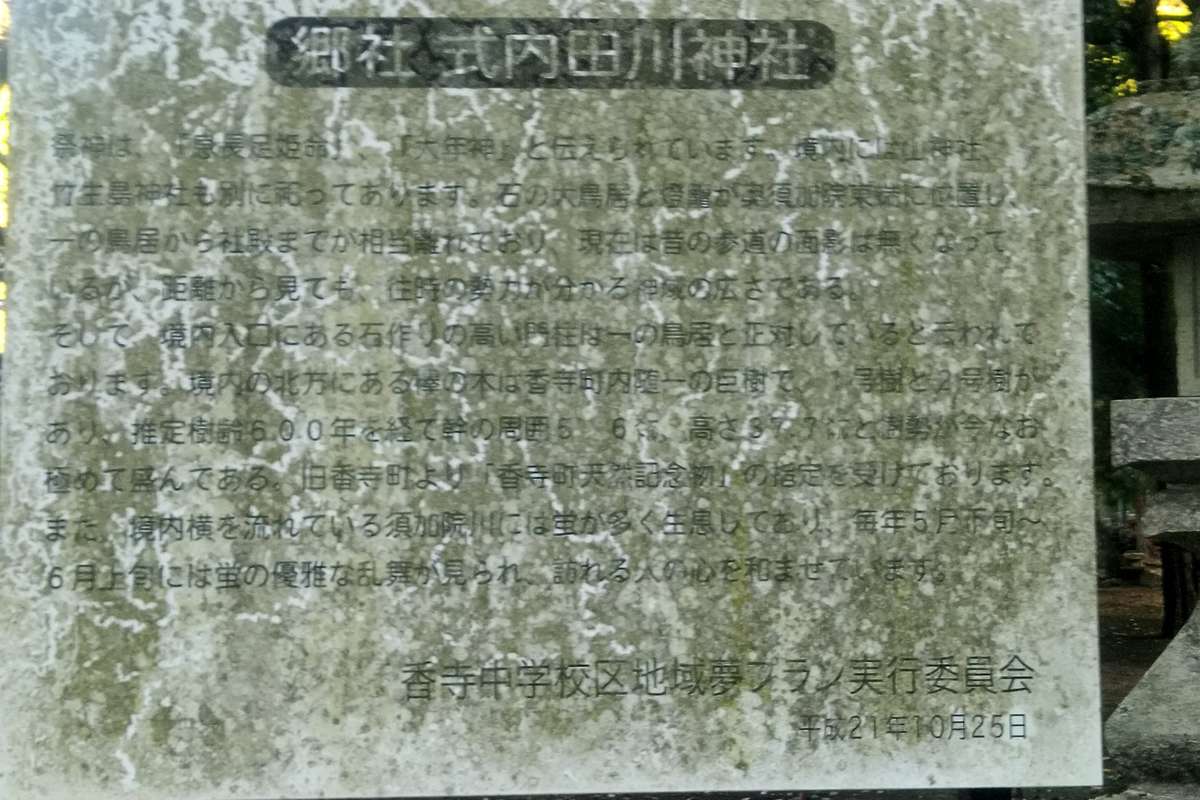 郷社 式内田川神社
祭神は、「息長足姫命」、「大年神」と伝えられています。境内には山神社、
竹生島神社も別に祀ってあります。石の大鳥居と燈籠が奥須加院東端に位置し、
一の鳥居から社殿までが相当離れており、現在は昔の参道の面影は無くなって
いるが、距離から見ても、往時の勢力が分かる神域の広さである。
そして、境内入口にある石作りの高い門柱は一の鳥居と正対していると云われて
おります。境内の北方にある欅の木は香寺町内随一の巨樹で、1号樹と2号樹が
あり、推定樹齢600年を経て幹の周囲5.6 高さ37.7 と樹勢が今なお
極めて盛んである。旧香寺町より「香寺町天然記念物」の指定を受けております。
また、境内横を流れている須加院川には蛍が多く生息しており、毎年5月下旬～
6月上旬には蛍の優雅な乱舞が見られ、訪れる人の心を和ませています。
香寺中学校区地域夢プラン実行委員会
平成21年10月25日